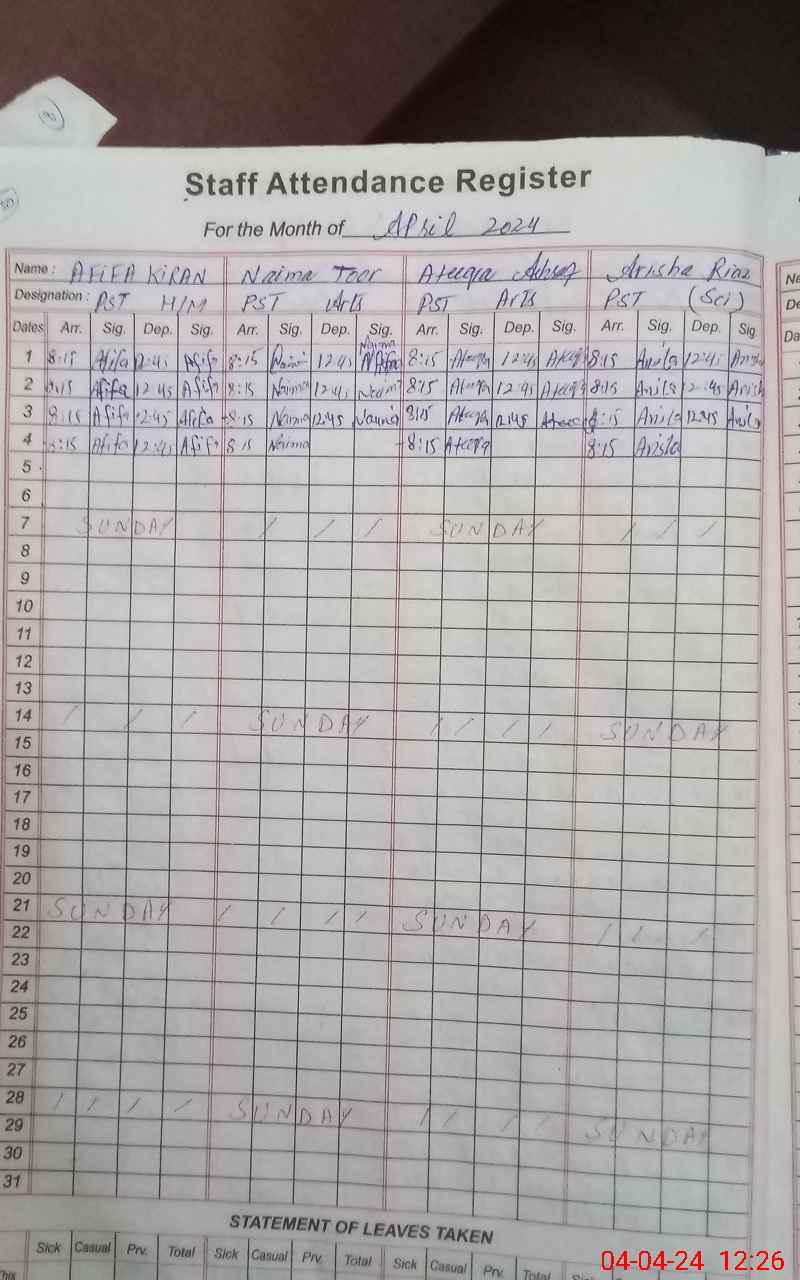 Staff Attendance Register
For the Month of April 2024
Name : AFIFA KIRAN Naima Toor Ateeqa Arisha Riaz
Designation : PST H/M PST Arts PST Arts PST (Sci)
Dates Arr. Sig. Dep. Sig. Arr. Sig. Dep. Sig. Arr. Sig. Dep. Sig. Arr. Sig. Dep. Sig
Naima
1 8:15 Afifa 12:45 Afifa 8:15 Naima 12:45 8:15 Ateeqa 12:45 Ateeqa 8:15 Arisha 12:45 Arisha
2 8:15 Afifa 12:45 Afifa 8:15 Naima 12:45 Naima 8:15 Ateeqa 12:45 Ateeqa 8:15 Arisha 12:45 Arisha
3 8:15 Afifa 12:45 Afifa 8:15 Naima 12:45 Naima 8:15 Ateeqa 12:45 Ateeqa 8:15 Arisha 12:45 Arisha
4 8:15 Afifa 12:45 Afifa 8:15 Naima 8:15 Ateeqa 8:15 Arisha
5
6
7 SUNDAY / / / SUNDAY / / /
8
9
10
11
12
13
14 / / / SUNDAY / / / / SUNDAY
15
16
17
18
19
20
21 SUNDAY / / / / SUNDAY / / /
22
23
24
25
26
27
28 / / / / SUNDAY / / / / SUNDAY
29
30
31
STATEMENT OF LEAVES TAKEN
Sick Casual Prv. Total Sick Casual Prv. Total Sick Casual Prv. Total
04-04-24 12:26